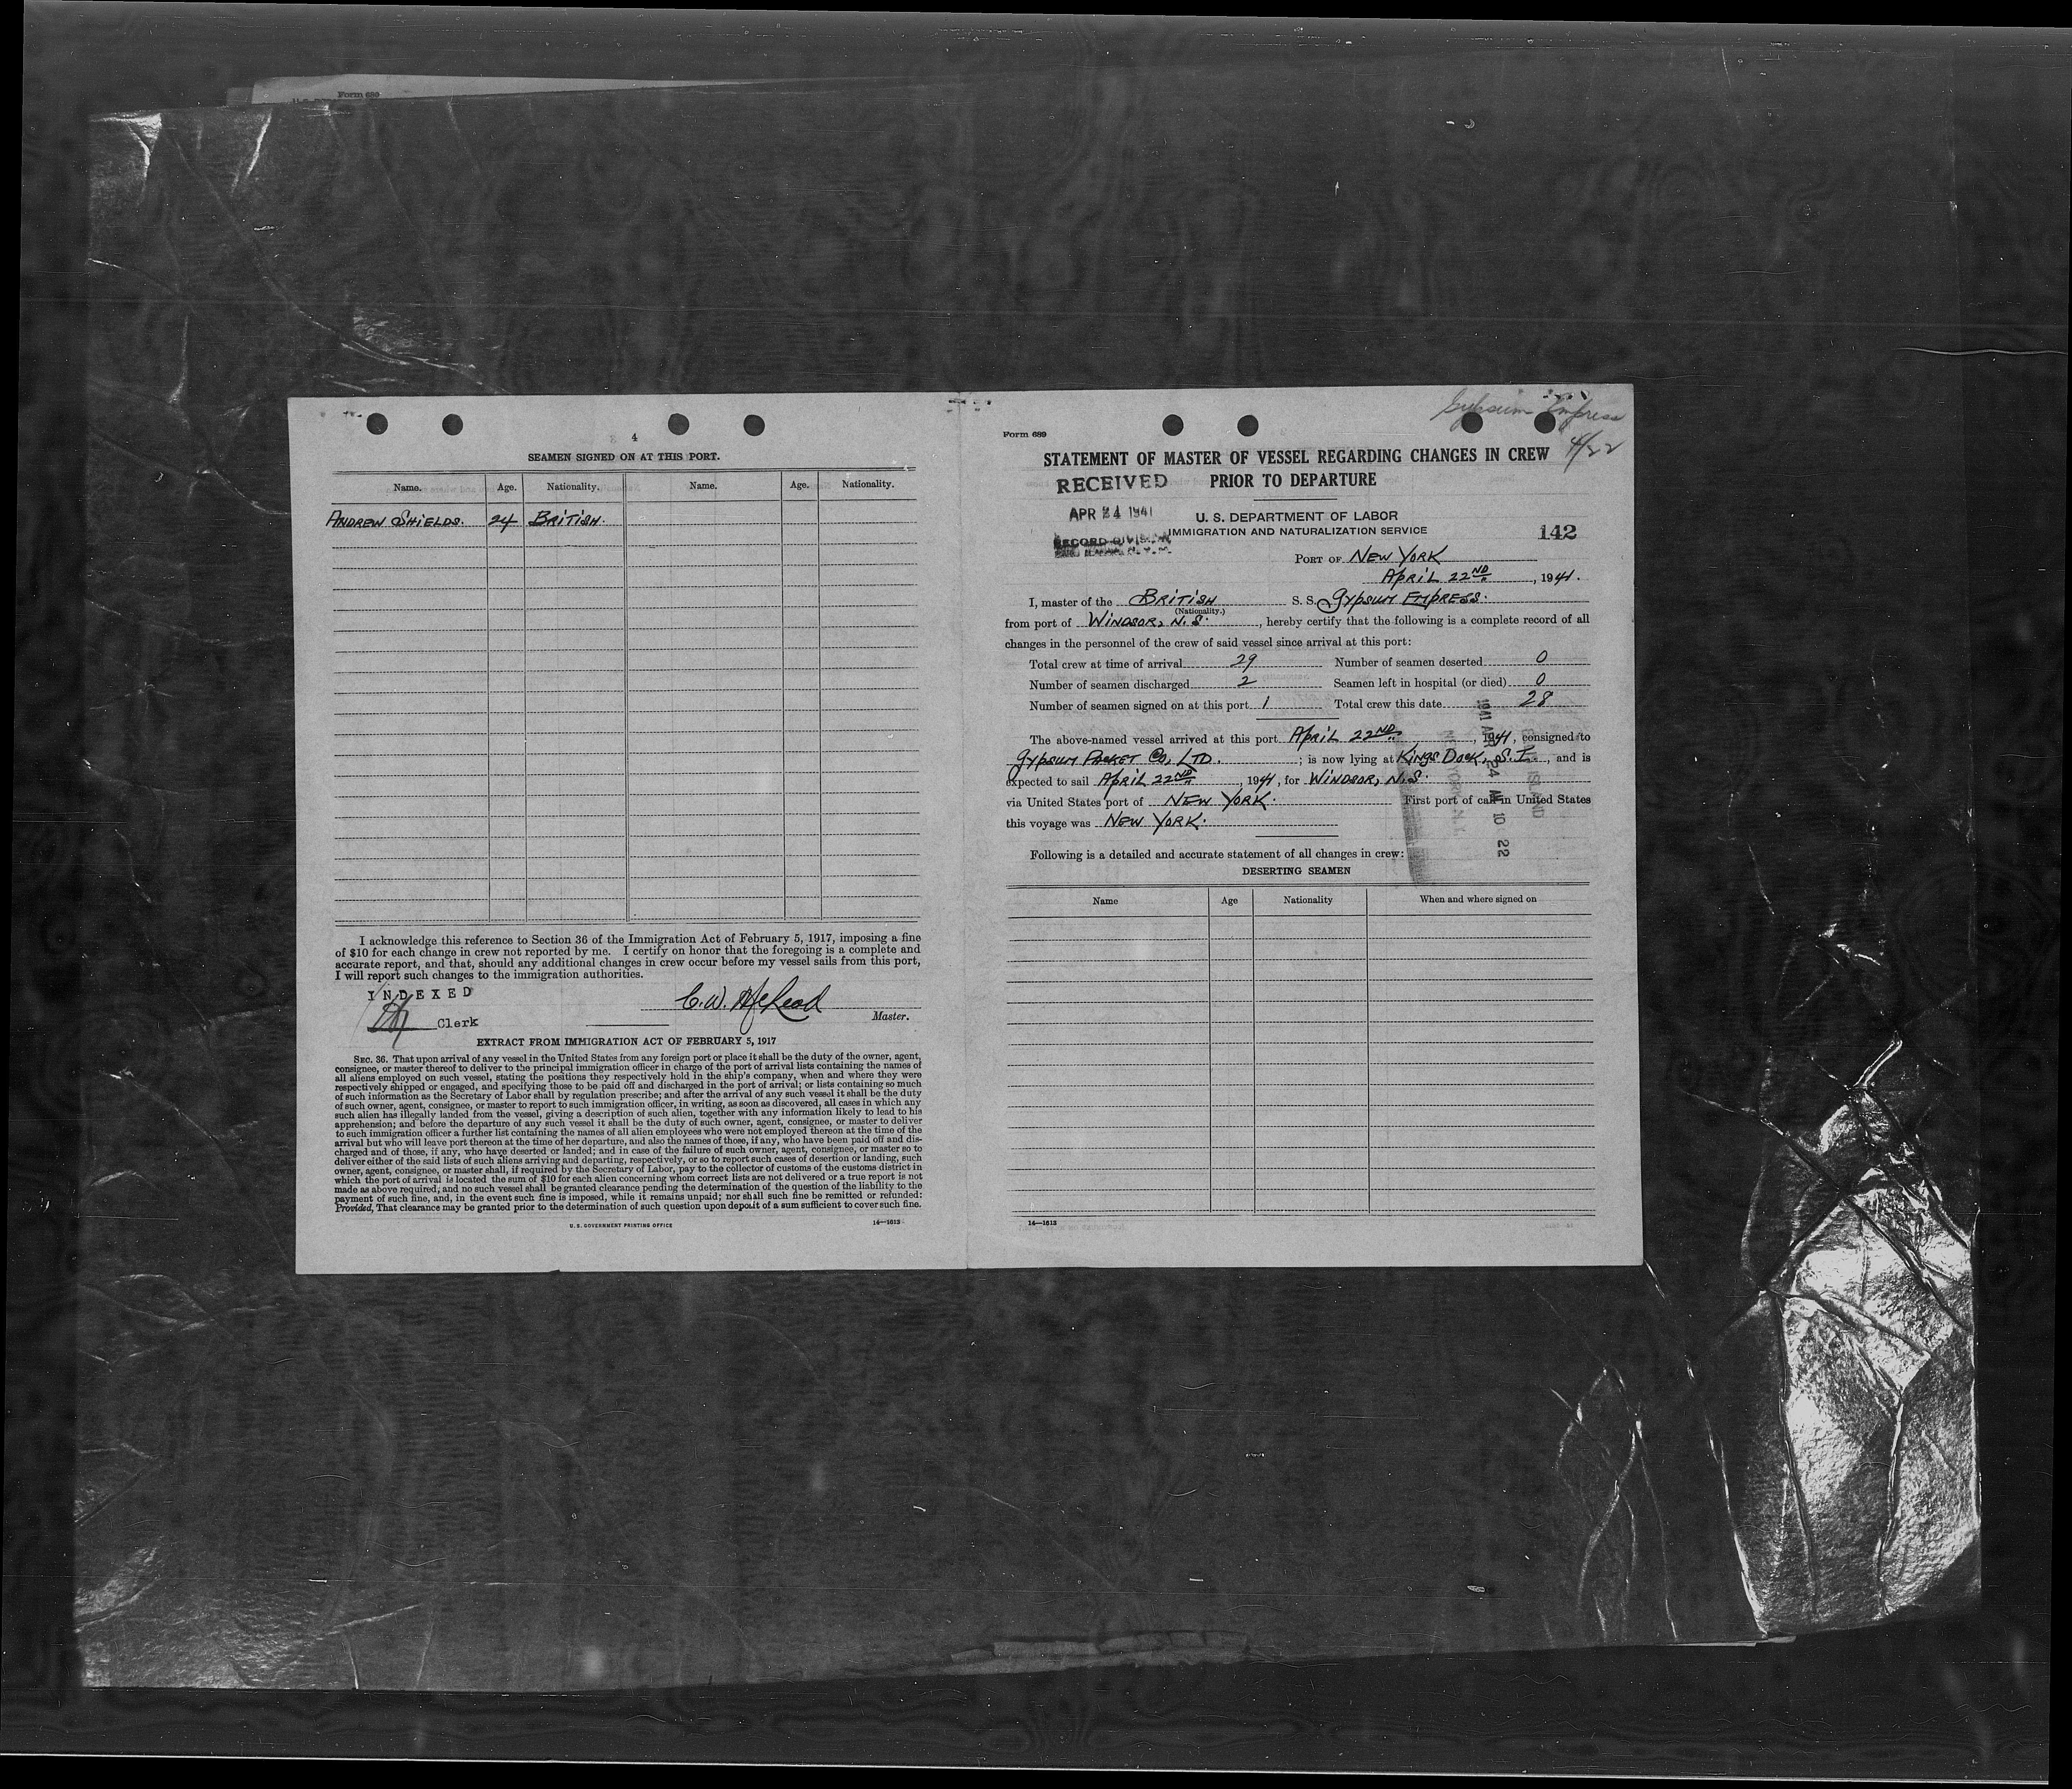 Form 689
4
SEAMEN SIGNED ON AT THIS PORT.
Name. Age. Nationality. Name. Age. Nationality.
ANDREW SHIELDS. 24 BRITISH.
I acknowledge this reference to Section 36 of the Immigration Act of February 5, 1917, imposing a fine
of $10 for each change in crew not reported by me. I certify on honor that the foregoing is a complete and
accurate report, and that, should any additional changes in crew occur before my vessel sails from this port,
I will report such changes to the immigration authorities.
INDEXED
C. W. McLeod
Clerk
Master.
EXTRACT FROM IMMIGRATION ACT OF FEBRUARY 5, 1917
SEC. 36. That upon arrival of any vessel in the United States from any foreign port or place it shall be the duty of the owner, agent,
consignee, or master thereof to deliver to the principal immigration officer in charge of the port of arrival lists containing the names of
all aliens employed on such vessel, stating the positions they respectively hold in the ship's company, when and where they were
respectively shipped or engaged, and specifying those to be paid off and discharged in the port of arrival; or lists containing so much
of such information as the Secretary of Labor shall by regulation prescribe; and after the arrival of any such vessel it shall be the duty
of such owner, agent, consignee, or master to report to such immigration officer, in writing, as soon as discovered, all cases in which any
such alien has illegally landed from the vessel, giving a description of such alien, together with any information likely to lead to his
apprehension; and before the departure of any such vessel it shall be the duty of such owner, agent, consignee, or master to deliver
to such immigration officer a further list containing the names of all alien employees who were not employed thereon at the time of the
arrival but who will leave port thereon at the time of her departure, and also the names of those, if any, who have been paid off and dis-
charged and of those, if any, who have deserted or landed; and in case of the failure of such owner, agent, consignee, or master so to
deliver either of the said lists of such aliens arriving and departing, respectively, or so to report such cases of desertion or landing, such
owner, agent, consignee, or master shall, if required by the Secretary of Labor, pay to the collector of customs of the customs district in
which the port of arrival is located the sum of $10 for each alien concerning whom correct lists are not delivered or a true report is not
made as above required; and no such vessel shall be granted clearance pending the determination of the question of the liability to the
payment of such fine, and, in the event such fine is imposed, while it remains unpaid; nor shall such fine be remitted or refunded:
Provided, That clearance may be granted prior to the determination of such question upon deposit of a sum sufficient to cover such fine.
U. S. GOVERNMENT PRINTING OFFICE 14—1613
Gypsum Empress
4/22
Form 689
STATEMENT OF MASTER OF VESSEL REGARDING CHANGES IN CREW
PRIOR TO DEPARTURE
RECEIVED
APR 24 1941
RECORD DIVISION
U. S. DEPARTMENT OF LABOR
IMMIGRATION AND NATURALIZATION SERVICE
142
PORT OF NEW YORK
APRIL 22ND, 1941.
I, master of the BRITISH S. S. GYPSUM EMPRESS.
(Nationality.)
from port of WINDSOR, N.S., hereby certify that the following is a complete record of all
changes in the personnel of the crew of said vessel since arrival at this port:
Total crew at time of arrival 29 Number of seamen deserted 0
Number of seamen discharged 2 Seamen left in hospital (or died) 0
Number of seamen signed on at this port 1 Total crew this date 28
The above-named vessel arrived at this port APRIL 22ND, 1941, consigned to
GYPSUM PACKET CO, LTD.; is now lying at KINGS DOCK, S.I., and is
expected to sail APRIL 22ND, 1941, for WINDSOR, N.S.
via United States port of NEW YORK. First port of call in United States
this voyage was NEW YORK.
1941 APR 24 AM 10 22
Following is a detailed and accurate statement of all changes in crew:
DESERTING SEAMEN
Name Age Nationality When and where signed on
14—1613